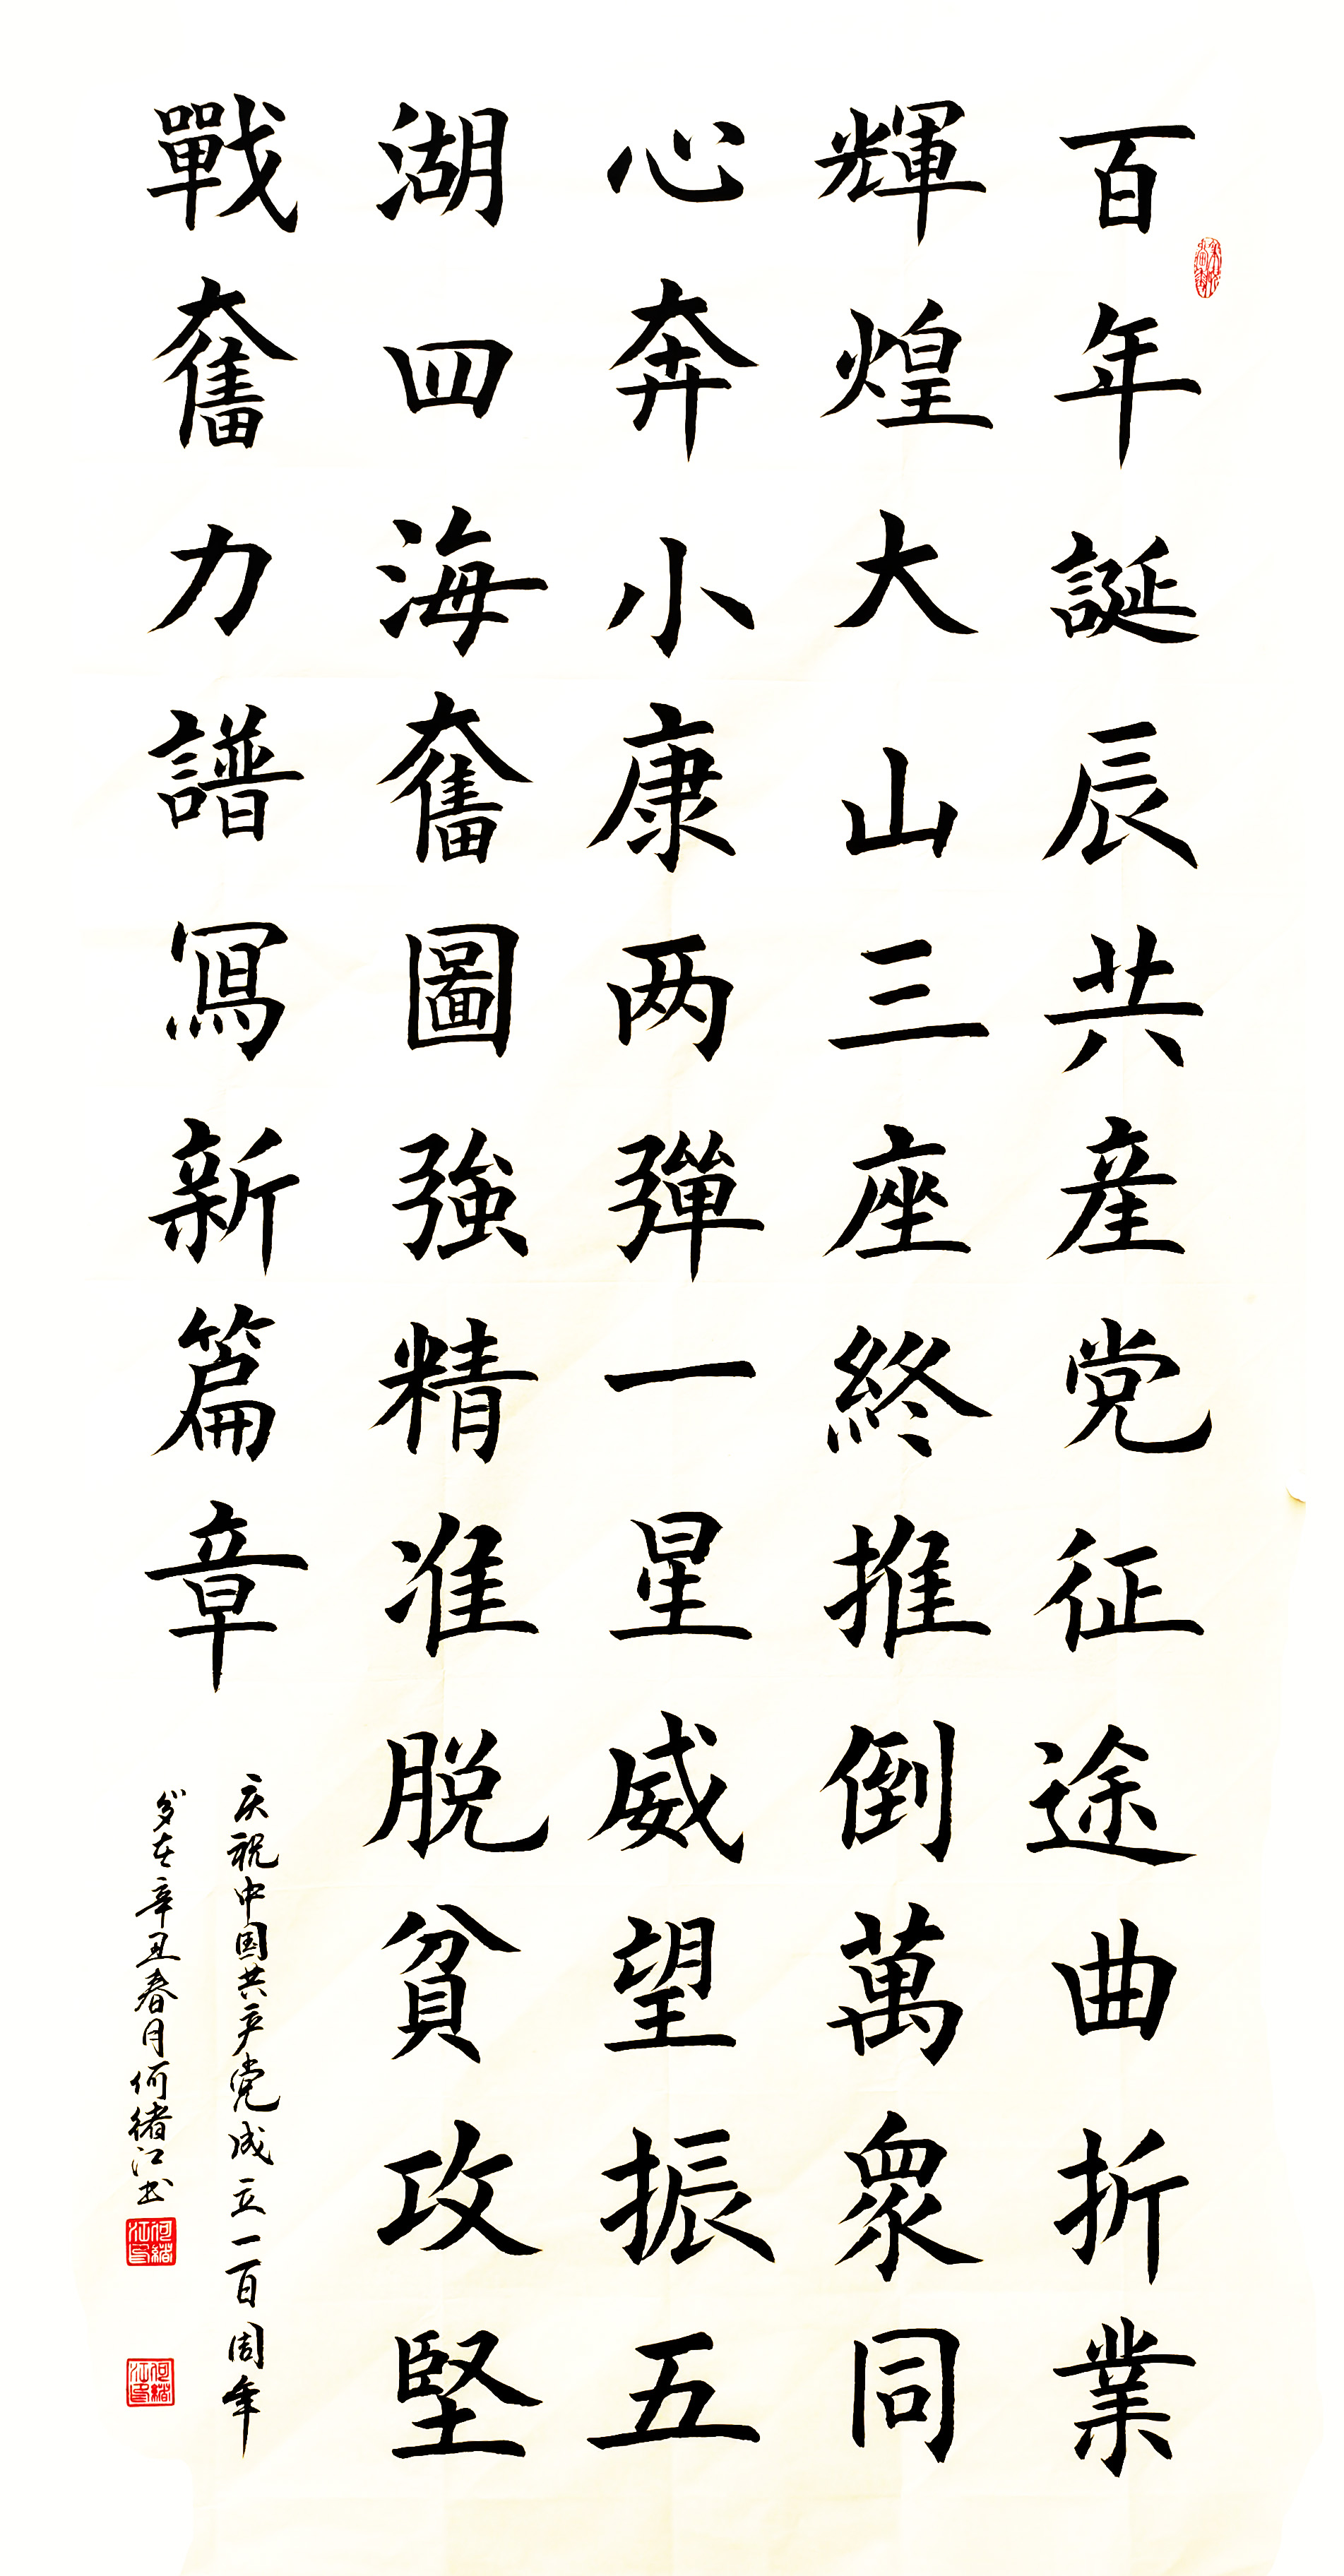 百年誕辰共産党征途曲折業
輝煌大山三座終推倒萬衆同
心奔小康两彈一星威望振五
湖四海奮圖強精准脱貧攻堅
戰奮力譜寫新篇章
庆祝中国共产党成立一百周年
岁在辛丑春月何绪江书